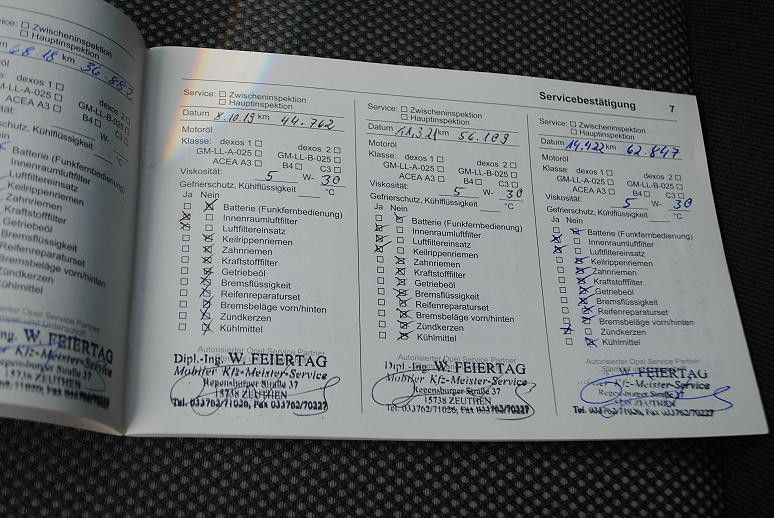 Zwischeninspektion
Hauptinspektion
km 36.857
dexos 2
GM-LL-A-025
GM-LL-B-025
ACEA A3 B4 C3
W-
Gefrierschutz, Kühlflüssigkeit °C
Batterie (Funkfernbedienung)
Innenraumluftfilter
Luftfiltereinsatz
Keilrippenriemen
Zahnriemen
Kraftstofffilter
Getriebeöl
Bremsflüssigkeit
Reifenreparaturset
Bremsbeläge vorn/hinten
Zündkerzen
Kühlmittel
Autorisierter Opel Service Partner
W. FEIERTAG
Servicebestätigung 7
Service: Zwischeninspektion
Hauptinspektion
Datum 8.10.19 km 44.762
Motoröl
Klasse: dexos 1 dexos 2
GM-LL-A-025 GM-LL-B-025
ACEA A3 B4 C3
Viskosität: 5 W- 30
Gefrierschutz, Kühlflüssigkeit °C
Ja Nein
Batterie (Funkfernbedienung)
Innenraumluftfilter
Luftfiltereinsatz
Keilrippenriemen
Zahnriemen
Kraftstofffilter
Getriebeöl
Bremsflüssigkeit
Reifenreparaturset
Bremsbeläge vorn/hinten
Zündkerzen
Kühlmittel
Autorisierter Opel Service Partner
Dipl.-Ing. W. FEIERTAG
Mobiler Kfz-Meister-Service
Regensburger Straße 37
15738 ZEUTHEN
Tel. 033762/71026, Fax 033762/70227
Service: Zwischeninspektion
Hauptinspektion
Datum 11.3.21 km 56.189
Motoröl
Klasse: dexos 1 dexos 2
GM-LL-A-025 GM-LL-B-025
ACEA A3 B4 C3
Viskosität: 5 W- 30
Gefrierschutz, Kühlflüssigkeit °C
Ja Nein
Batterie (Funkfernbedienung)
Innenraumluftfilter
Luftfiltereinsatz
Keilrippenriemen
Zahnriemen
Kraftstofffilter
Getriebeöl
Bremsflüssigkeit
Reifenreparaturset
Bremsbeläge vorn/hinten
Zündkerzen
Kühlmittel
Autorisierter Opel Service Partner
Dipl.-Ing. W. FEIERTAG
Mobiler Kfz-Meister-Service
Regensburger Straße 37
15738 ZEUTHEN
Tel. 033762/71026, Fax 033762/70227
Service: Zwischeninspektion
Hauptinspektion
Datum 14.4.22 km 62.847
Motoröl
Klasse: dexos 1 dexos 2
GM-LL-A-025 GM-LL-B-025
ACEA A3 B4 C3
Viskosität: 5 W- 30
Gefrierschutz, Kühlflüssigkeit °C
Ja Nein
Batterie (Funkfernbedienung)
Innenraumluftfilter
Luftfiltereinsatz
Keilrippenriemen
Zahnriemen
Kraftstofffilter
Getriebeöl
Bremsflüssigkeit
Reifenreparaturset
Bremsbeläge vorn/hinten
Zündkerzen
Kühlmittel
Autorisierter Opel Service Partner
Dipl.-Ing. W. FEIERTAG
Mobiler Kfz-Meister-Service
Regensburger Straße 37
15738 ZEUTHEN
Tel. 033762/71026, Fax 033762/70227